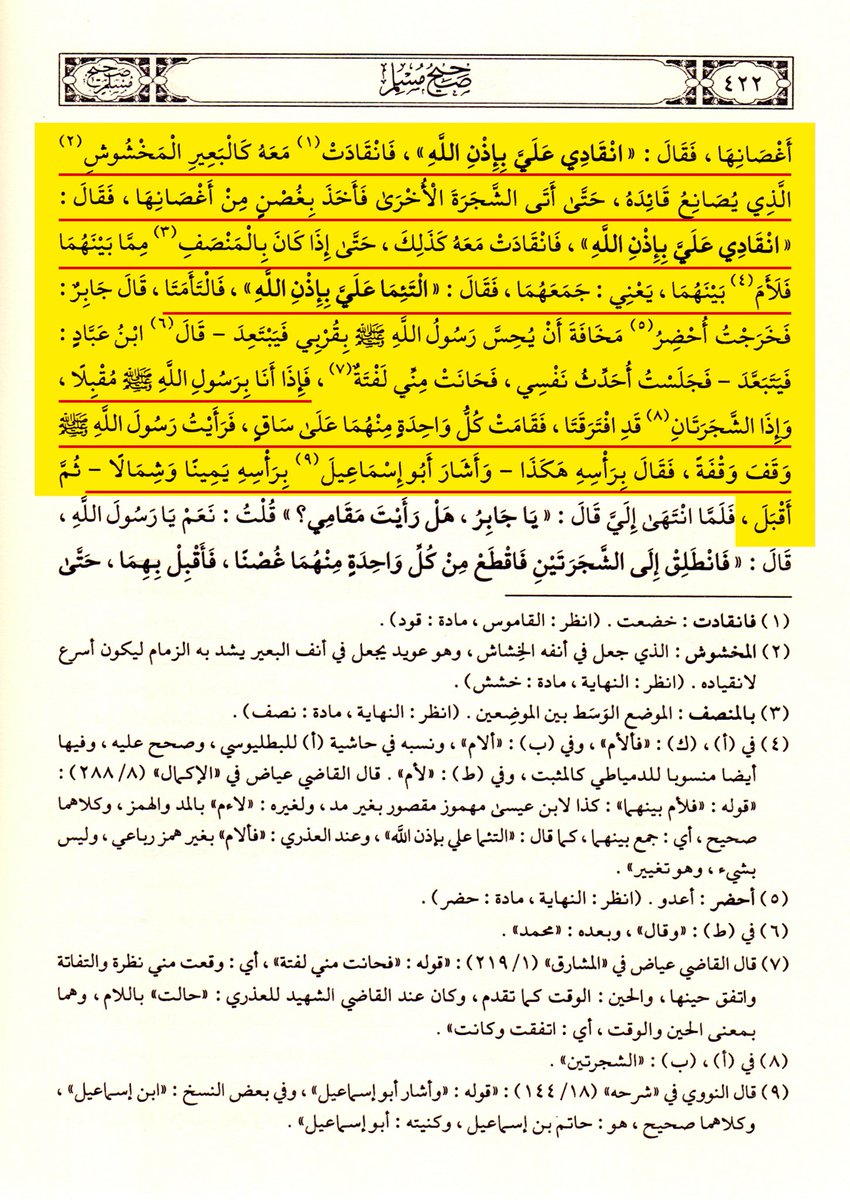 صحيح مسلم
صحيح مسلم
٤٢٢
أَغْصَانِهَا ، فَقَالَ : « انْقَادِي عَلَيَّ بِإِذْنِ اللَّهِ » ، فَانْقَادَتْ(١) مَعَهُ كَالْبَعِيرِ الْمَخْشُوشِ(٢)
الَّذِي يُصَانِعُ قَائِدَهُ ، حَتَّىٰ أَتَى الشَّجَرَةَ الْأُخْرَىٰ فَأَخَذَ بِغُصْنٍ مِنْ أَغْصَانِهَا ، فَقَالَ :
« انْقَادِي عَلَيَّ بِإِذْنِ اللَّهِ » ، فَانْقَادَتْ مَعَهُ كَذَلِكَ ، حَتَّىٰ إِذَا كَانَ بِالْمَنْصَفِ(٣) مِمَّا بَيْنَهُمَا
فَلَأَمَ(٤) بَيْنَهُمَا ، يَعْنِي : جَمَعَهُمَا ، فَقَالَ : « الْتَئِمَا عَلَيَّ بِإِذْنِ اللَّهِ » ، فَالْتَأَمَتَا ، قَالَ جَابِرٌ :
فَخَرَجْتُ أُحْضِرُ(٥) مَخَافَةَ أَنْ يُحِسَّ رَسُولُ اللَّهِ ﷺ بِقُرْبِي فَيَبْتَعِدَ – قَالَ(٦) ابْنُ عَبَّادٍ :
فَيَتَبَعَّدَ – فَجَلَسْتُ أُحَدِّثُ نَفْسِي ، فَحَانَتْ مِنِّي لَفْتَةٌ(٧) ، فَإِذَا أَنَا بِرَسُولِ اللَّهِ ﷺ مُقْبِلًا ،
وَإِذَا الشَّجَرَتَانِ(٨) قَدِ افْتَرَقَتَا ، فَقَامَتْ كُلُّ وَاحِدَةٍ مِنْهُمَا عَلَىٰ سَاقٍ ، فَرَأَيْتُ رَسُولَ اللَّهِ ﷺ
وَقَفَ وَقْفَةً ، فَقَالَ بِرَأْسِهِ هَكَذَا – وَأَشَارَ أَبُو إِسْمَاعِيلَ(٩) بِرَأْسِهِ يَمِينًا وَشِمَالًا – ثُمَّ
أَقْبَلَ ، فَلَمَّا انْتَهَىٰ إِلَيَّ قَالَ : « يَا جَابِرُ ، هَلْ رَأَيْتَ مَقَامِي؟ » قُلْتُ : نَعَمْ يَا رَسُولَ اللَّهِ ،
قَالَ : « فَانْطَلِقْ إِلَى الشَّجَرَتَيْنِ فَاقْطَعْ مِنْ كُلِّ وَاحِدَةٍ مِنْهُمَا غُصْنًا ، فَأَقْبِلْ بِهِمَا ، حَتَّىٰ
(١) فانقادت : خضعت . (انظر : القاموس ، مادة : قود) .
(٢) المخشوش : الذي جعل في أنفه الخِشاش ، وهو عويد يجعل في أنف البعير يشد به الزمام ليكون أسرع
لانقياده . (انظر : النهاية ، مادة : خشش) .
(٣) بالمنصف : الموضع الوَسَط بين الموضِعين . (انظر : النهاية ، مادة : نصف) .
(٤) في (أ) ، (ك) : «فألأم» ، وفي (ب) : «ألام» ، ونسبه في حاشية (أ) للبطليوسي ، وصحح عليه ، وفيها
أيضا منسوبا للدمياطي كالمثبت ، وفي (ط) : «لأم» . قال القاضي عياض في «الإكمال» (٨/ ٢٨٨) :
«قوله : «فلأم بينهما» : كذا لابن عيسىٰ مهموز مقصور بغير مد ، ولغيره : «لاءم» بالمد والهمز ، وكلاهما
صحيح ، أي : جمع بينهما ، كما قال : «التئما علي بإذن الله» ، وعند العذري : «فألام» بغير همز رباعي ، وليس
بشيء ، وهو تغيير» .
(٥) أحضر : أعدو . (انظر : النهاية ، مادة : حضر) .
(٦) في (ط) : «وقال» ، وبعده : «محمد» .
(٧) قال القاضي عياض في «المشارق» (١/ ٢١٩) : «قوله : «فحانت مني لفتة» ، أي : وقعت مني نظرة والتفاتة
واتفق حينها ، والحين : الوقت كما تقدم ، وكان عند القاضي الشهيد للعذري : «حالت» باللام ، وهما
بمعنى الحين والوقت ، أي : اتفقت وكانت» .
(٨) في (أ) ، (ب) : «الشجرتين» .
(٩) قال النووي في «شرحه» (١٨/ ١٤٤) : «قوله : «وأشار أبو إسماعيل» ، وفي بعض النسخ : «ابن إسماعيل» ،
وكلاهما صحيح ، هو : حاتم بن إسماعيل ، وكنيته : أبو إسماعيل» .